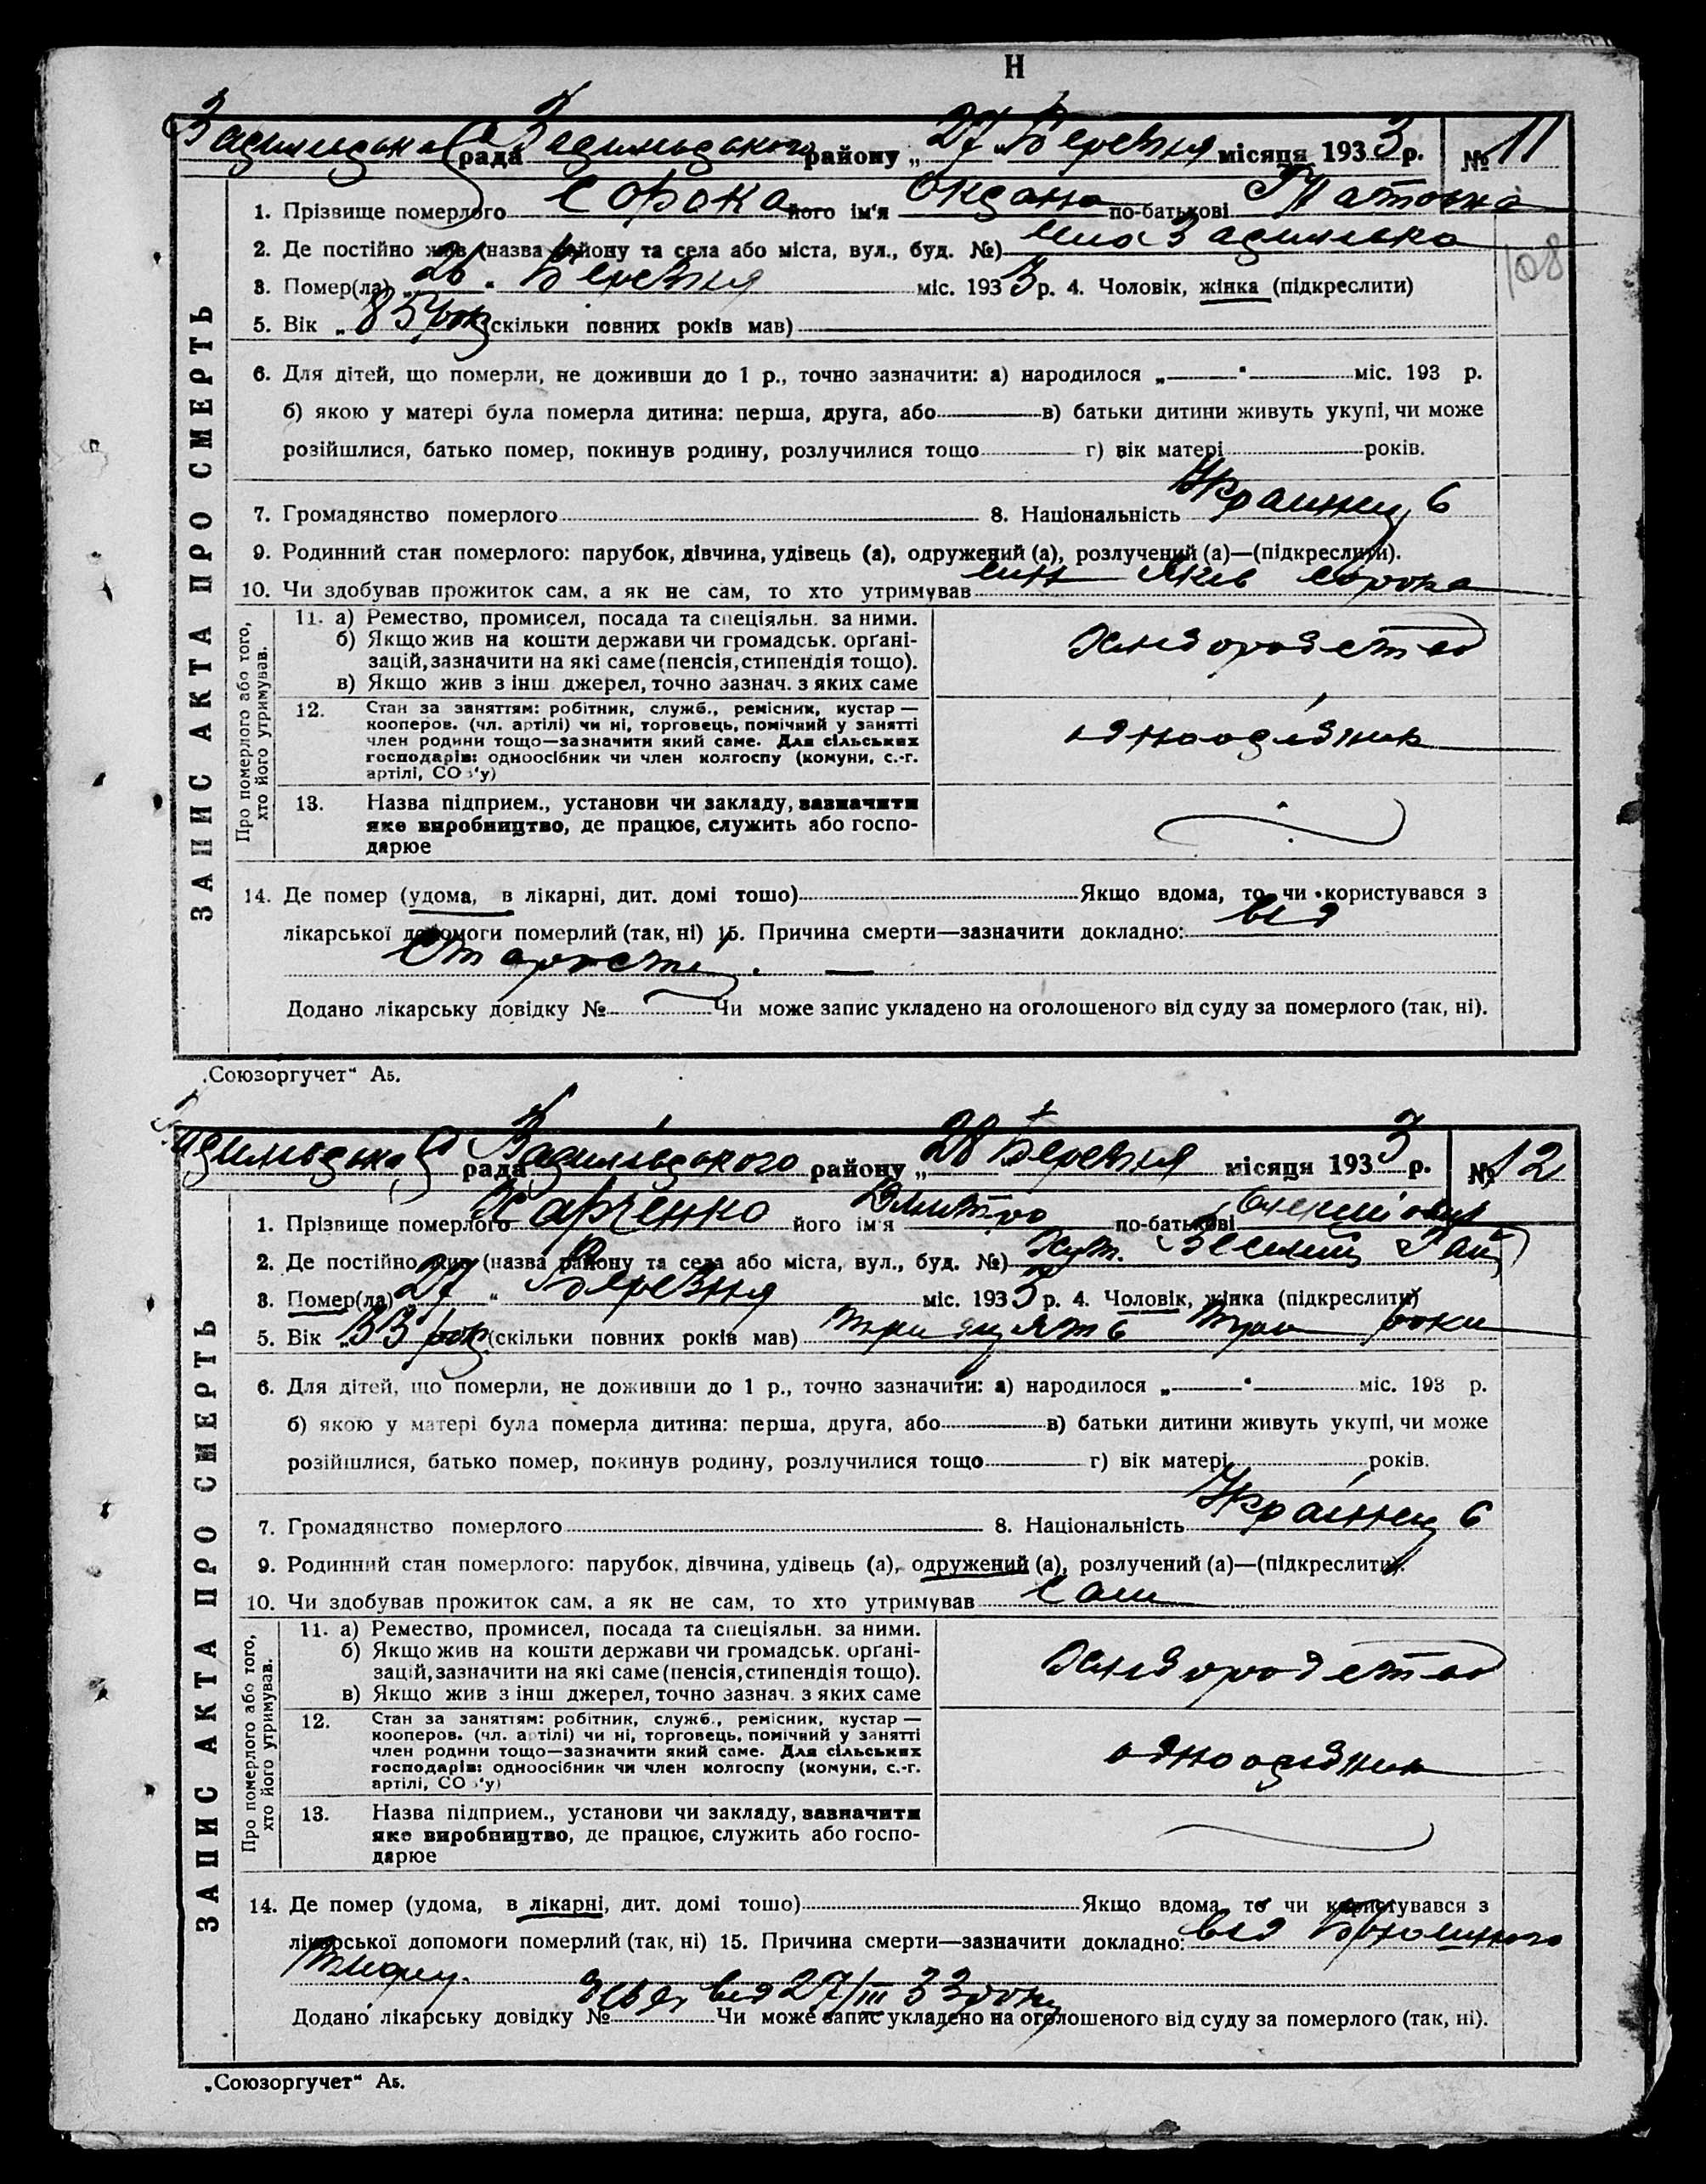 Н
рада району „27" Березня місяця 1933 р. № 11
1. Прізвище померлого Сорока його ім'я Оксана по-батькові
2. Де постійно жив (назва району та села або міста, вул., буд. №)
3. Помер(ла) „26" Березня міс. 1933 р. 4. Чоловік, жінка (підкреслити)
5. Вік „85 рок (скільки повних років мав)
6. Для дітей, що померли, не доживши до 1 р., точно зазначити: а) народилося „ " міс. 193 р.
б) якою у матері була померла дитина: перша, друга, або в) батьки дитини живуть укупі, чи може
розійшлися, батько помер, покинув родину, розлучилися тощо г) вік матері років.
7. Громадянство померлого 8. Національність Украинець
9. Родинний стан померлого: парубок, дівчина, удівець (а), одружений (а), розлучений (а)—(підкреслити).
10. Чи здобував прожиток сам, а як не сам, то хто утримував син Яків Сорока
ЗАПИС АКТА ПРО СМЕРТЬ
Про померлого або того,
хто його утримував.
11. а) Ремество, промисел, посада та спеціяльн. за ними.
б) Якщо жив на кошти держави чи громадськ. орґані-
зацій, зазначити на які саме (пенсія, стипендія тощо).
в) Якщо жив з інш джерел, точно зазнач. з яких саме
Хлиборобство
12. Стан за заняттям: робітник, служб., ремісник, кустар —
кооперов. (чл. артілі) чи ні, торговець, помічний у занятті
член родини тощо—зазначити який саме. Для сільських
господарів: одноосібник чи член колгоспу (комуни, с.-г.
артілі, СО у)
13. Назва підприєм., установи чи закладу, зазначити
яке виробництво, де працює, служить або госпо-
дарює
14. Де помер (удома, в лікарні, дит. домі тошо) Якщо вдома, то чи користувався з
лікарської допомоги померлий (так, ні) 15. Причина смерти—зазначити докладно: від
старости.
Додано лікарську довідку № Чи може запис укладено на оголошеного від суду за померлого (так, ні).
„Союзоргучет" А5.
108
рада району „28 Березня місяця 1933 р. № 12
1. Прізвище померлого Харченко його ім'я Дмитро по-батькові
2. Де постійно жив (назва району та села або міста, вул., буд. №) Хут. Веселий Гай
3. Помер(ла) 27 " Березня міс. 1933 р. 4. Чоловік, жінка (підкреслити)
5. Вік „33 рок (скільки повних років мав) тридцять три роки
6. Для дітей, що померли, не доживши до 1 р., точно зазначити: а) народилося „ " міс. 193 р.
б) якою у матері була померла дитина: перша, друга, або в) батьки дитини живуть укупі, чи може
розійшлися, батько помер, покинув родину, розлучилися тощо г) вік матері років.
7. Громадянство померлого 8. Національність Українець
9. Родинний стан померлого: парубок, дівчина, удівець (а), одружений (а), розлучений (а)—(підкреслити).
10. Чи здобував прожиток сам, а як не сам, то хто утримував сам
ЗАПИС АКТА ПРО СМЕРТЬ
Про померлого або того,
хто його утримував.
11. а) Ремество, промисел, посада та спеціяльн. за ними.
б) Якщо жив на кошти держави чи громадськ. орґані-
зацій, зазначити на які саме (пенсія, стипендія тощо).
в) Якщо жив з інш джерел, точно зазнач. з яких саме
Хлиборобство
12. Стан за заняттям: робітник, служб., ремісник, кустар —
кооперов. (чл. артілі) чи ні, торговець, помічний у занятті
член родини тощо—зазначити який саме. Для сільських
господарів: одноосібник чи член колгоспу (комуни, с.-г.
артілі, СО у)
13. Назва підприєм., установи чи закладу, зазначити
яке виробництво, де працює, служить або госпо-
дарює
14. Де помер (удома, в лікарні, дит. домі тошо) Якщо вдома то чи користувався з
лікарської допомоги померлий (так, ні) 15. Причина смерти—зазначити докладно: від
тифу.
від 27/III 33 року
Додано лікарську довідку № Чи може запис укладено на оголошеного від суду за померлого (так, ні).
„Союзоргучет" А5.